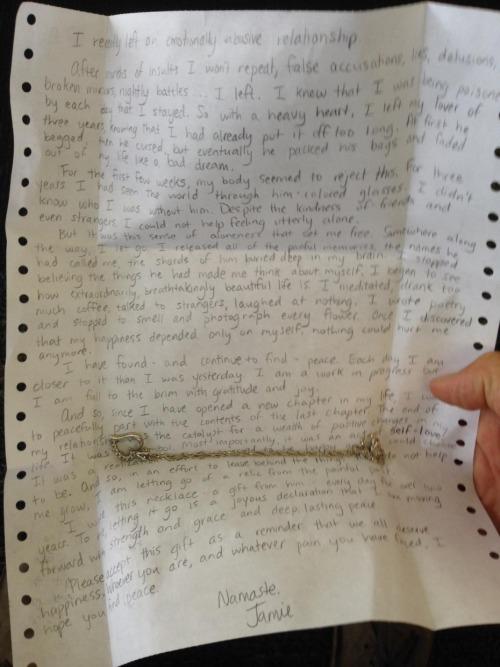 I recently left an emotionally abusive relationship.
After months of insults I won't repeat, false accusations, lies, delusions,
broken mirrors, nightly battles... I left. I knew that I was being poisoned
by each day that I stayed. So with a heavy heart, I left my lover of
three years, knowing that I had already put it off too long. At first he
begged, then he cursed, but eventually he packed his bags and faded
out of my life like a bad dream.
For the first few weeks, my body seemed to reject this. For three
years I had seen the world through him-colored glasses. I didn't
know who I was without him. Despite the kindness of friends and
even strangers, I could not help feeling utterly alone.
But it was this sense of aloneness that set me free. Somewhere along
the way, I let go. I released all of the painful memories, the names he
had called me, the shards of him buried deep in my brain. I stopped
believing the things he had made me think about myself. I began to see
how extraordinarily, breathtakingly beautiful life is. I meditated, drank too
much coffee, talked to strangers, laughed at nothing. I wrote poetry
and stopped to smell and photograph every flower. Once I discovered
that my happiness depended only on myself, nothing could hurt me
anymore.
I have found - and continue to find - peace. Each day I am
closer to it than I was yesterday. I am a work in progress but
I am full to the brim with gratitude and joy.
And so, since I have opened a new chapter in my life, I
to peacefully part with the contents of the last chapter. The end of
my relationship the catalyst for a wealth of positive changes in my
life. It was Most importantly, it was self-love.
It was a could choose
to be. And so, in an effort to leave behind do not help
me grow, am letting go of a relic from the painful
I wore this necklace - a gift from him - every day for over two
years. To me, letting it go is a joyous declaration that I am moving
forward with strength and grace and deep, lasting peace.
Please accept this gift as a reminder that we all deserve
happiness. Whoever you are, and whatever pain you have faced, I
hope you find peace.
Namaste.
Jamie